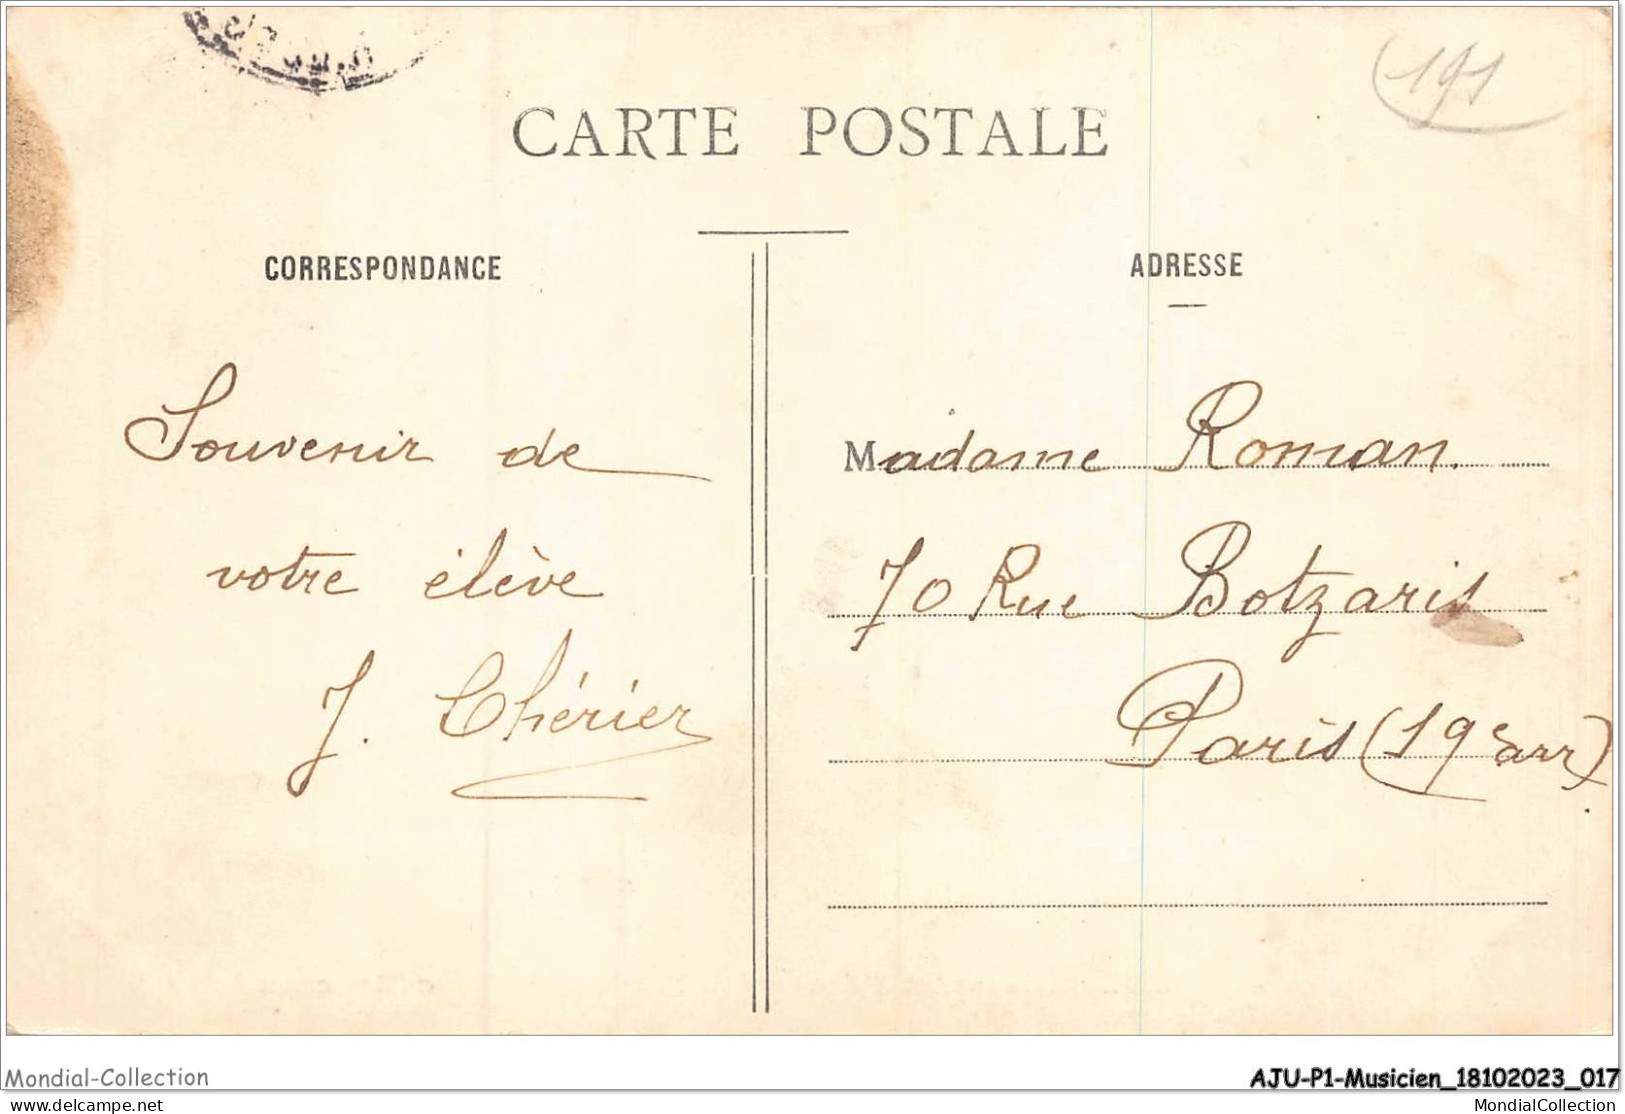 191
CARTE POSTALE
CORRESPONDANCE
ADRESSE
Souvenir de
votre élève
J. Chérier
Madame Roman.
70 Rue Botzaris
Paris (19e arr)
Mondial-Collection
AJU-P1-Musicien_18102023_017
delcampe.net
MondialCollection